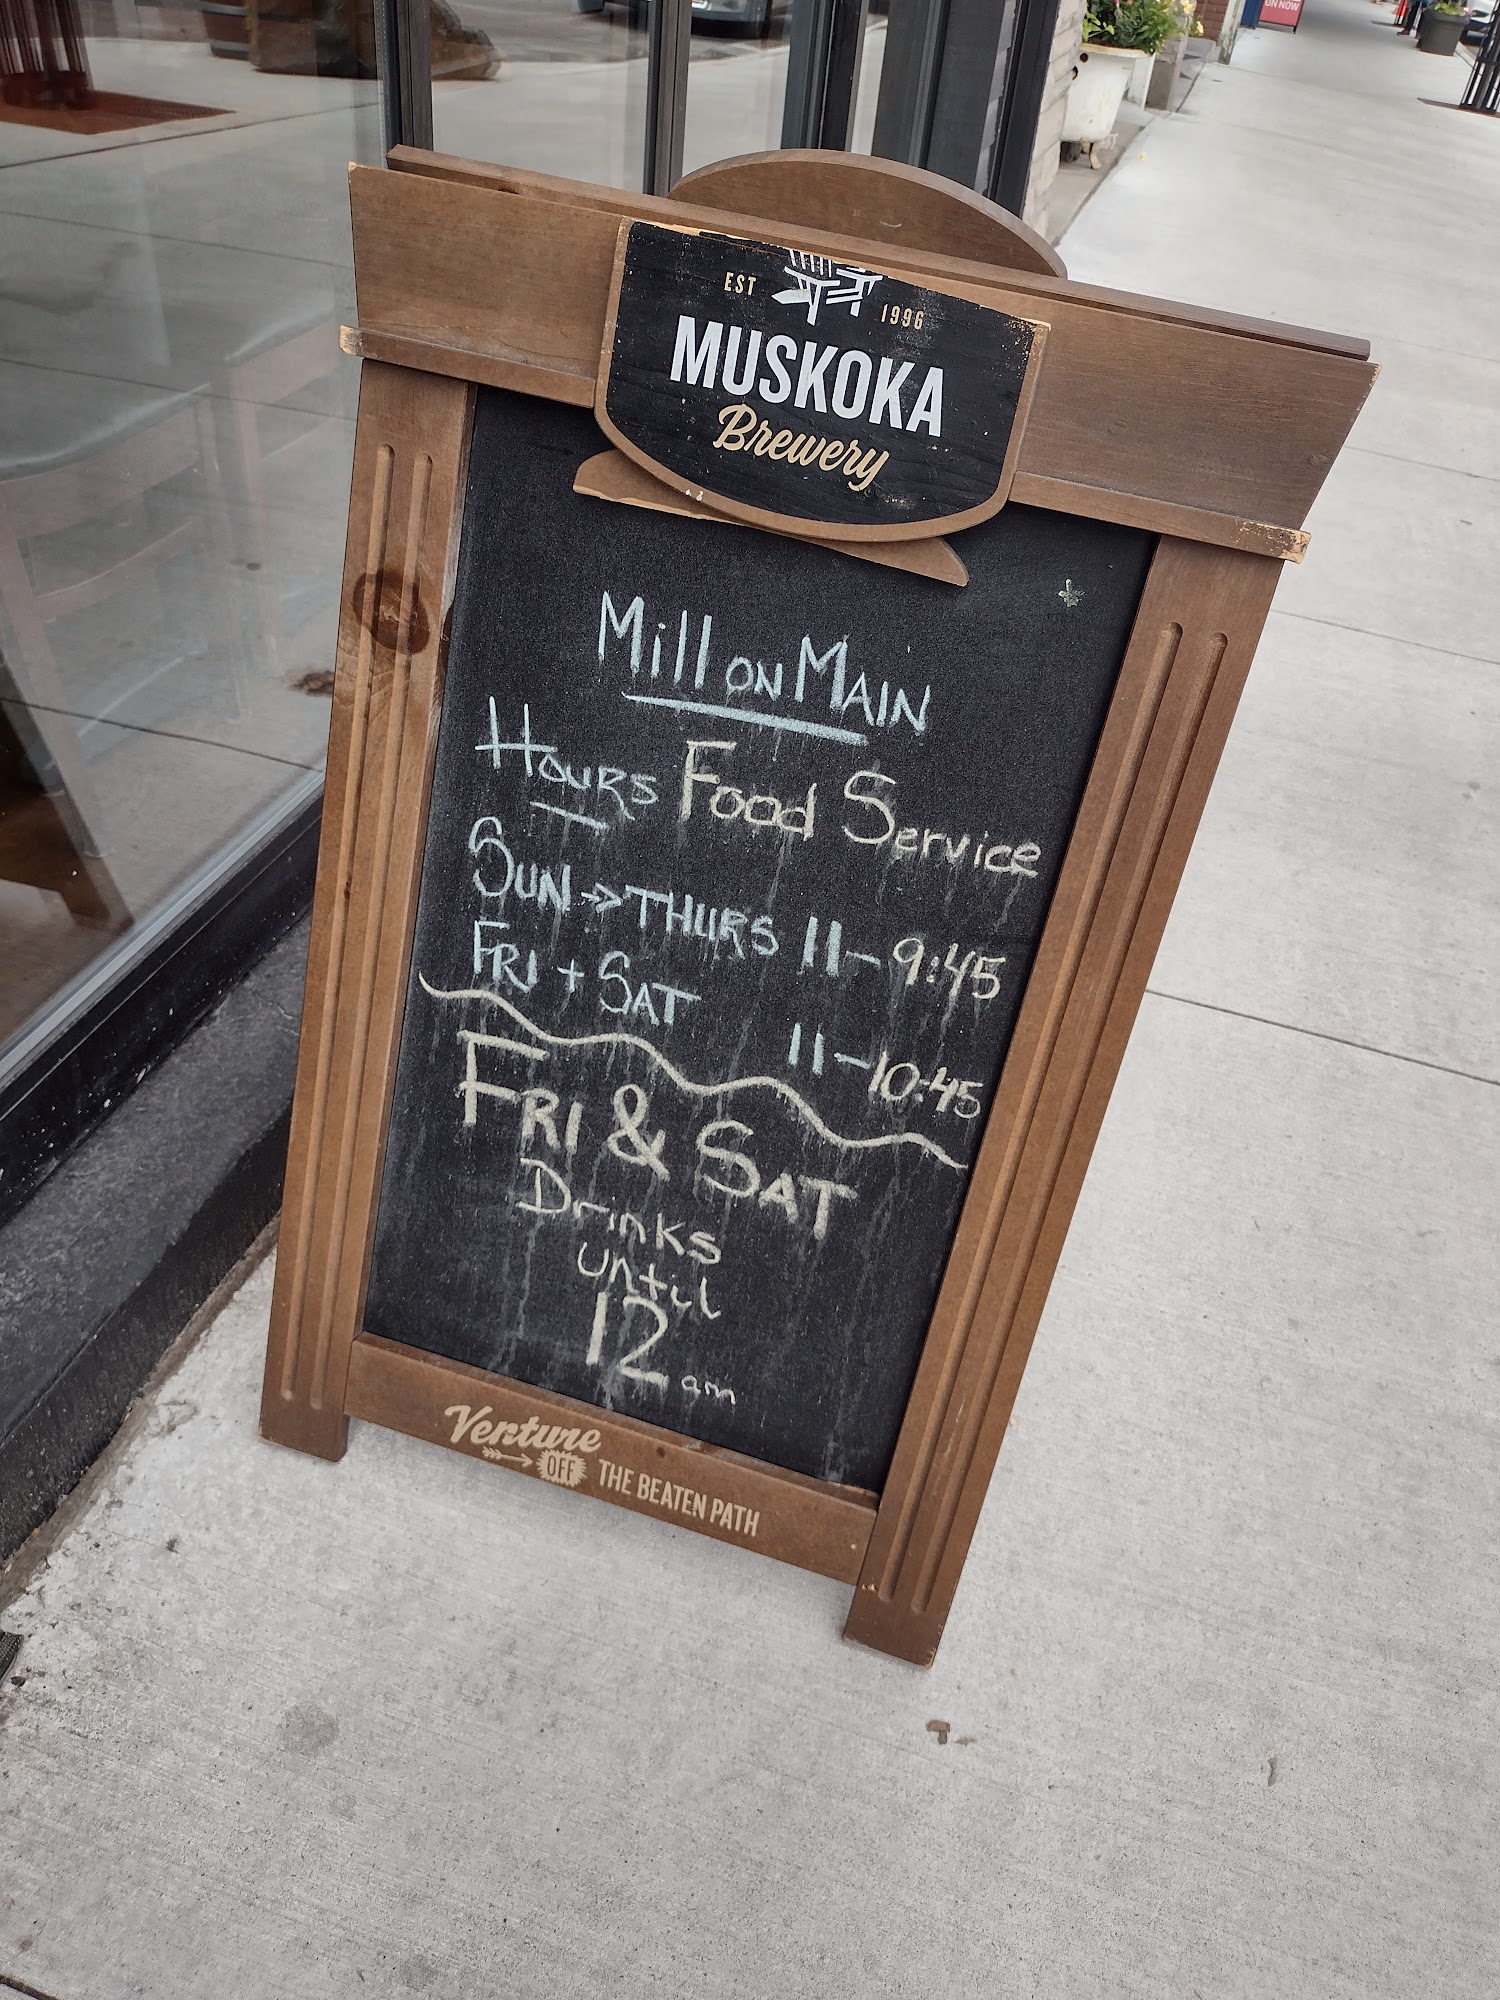 ON NOW
EST 1996
MUSKOKA
Brewery
Mill ON MAIN
HOURS Food Service
SUN → THURS 11 - 9:45
FRI + SAT 11 - 10:45
FRI & SAT
Drinks
until
12 am
Venture
OFF THE BEATEN PATH